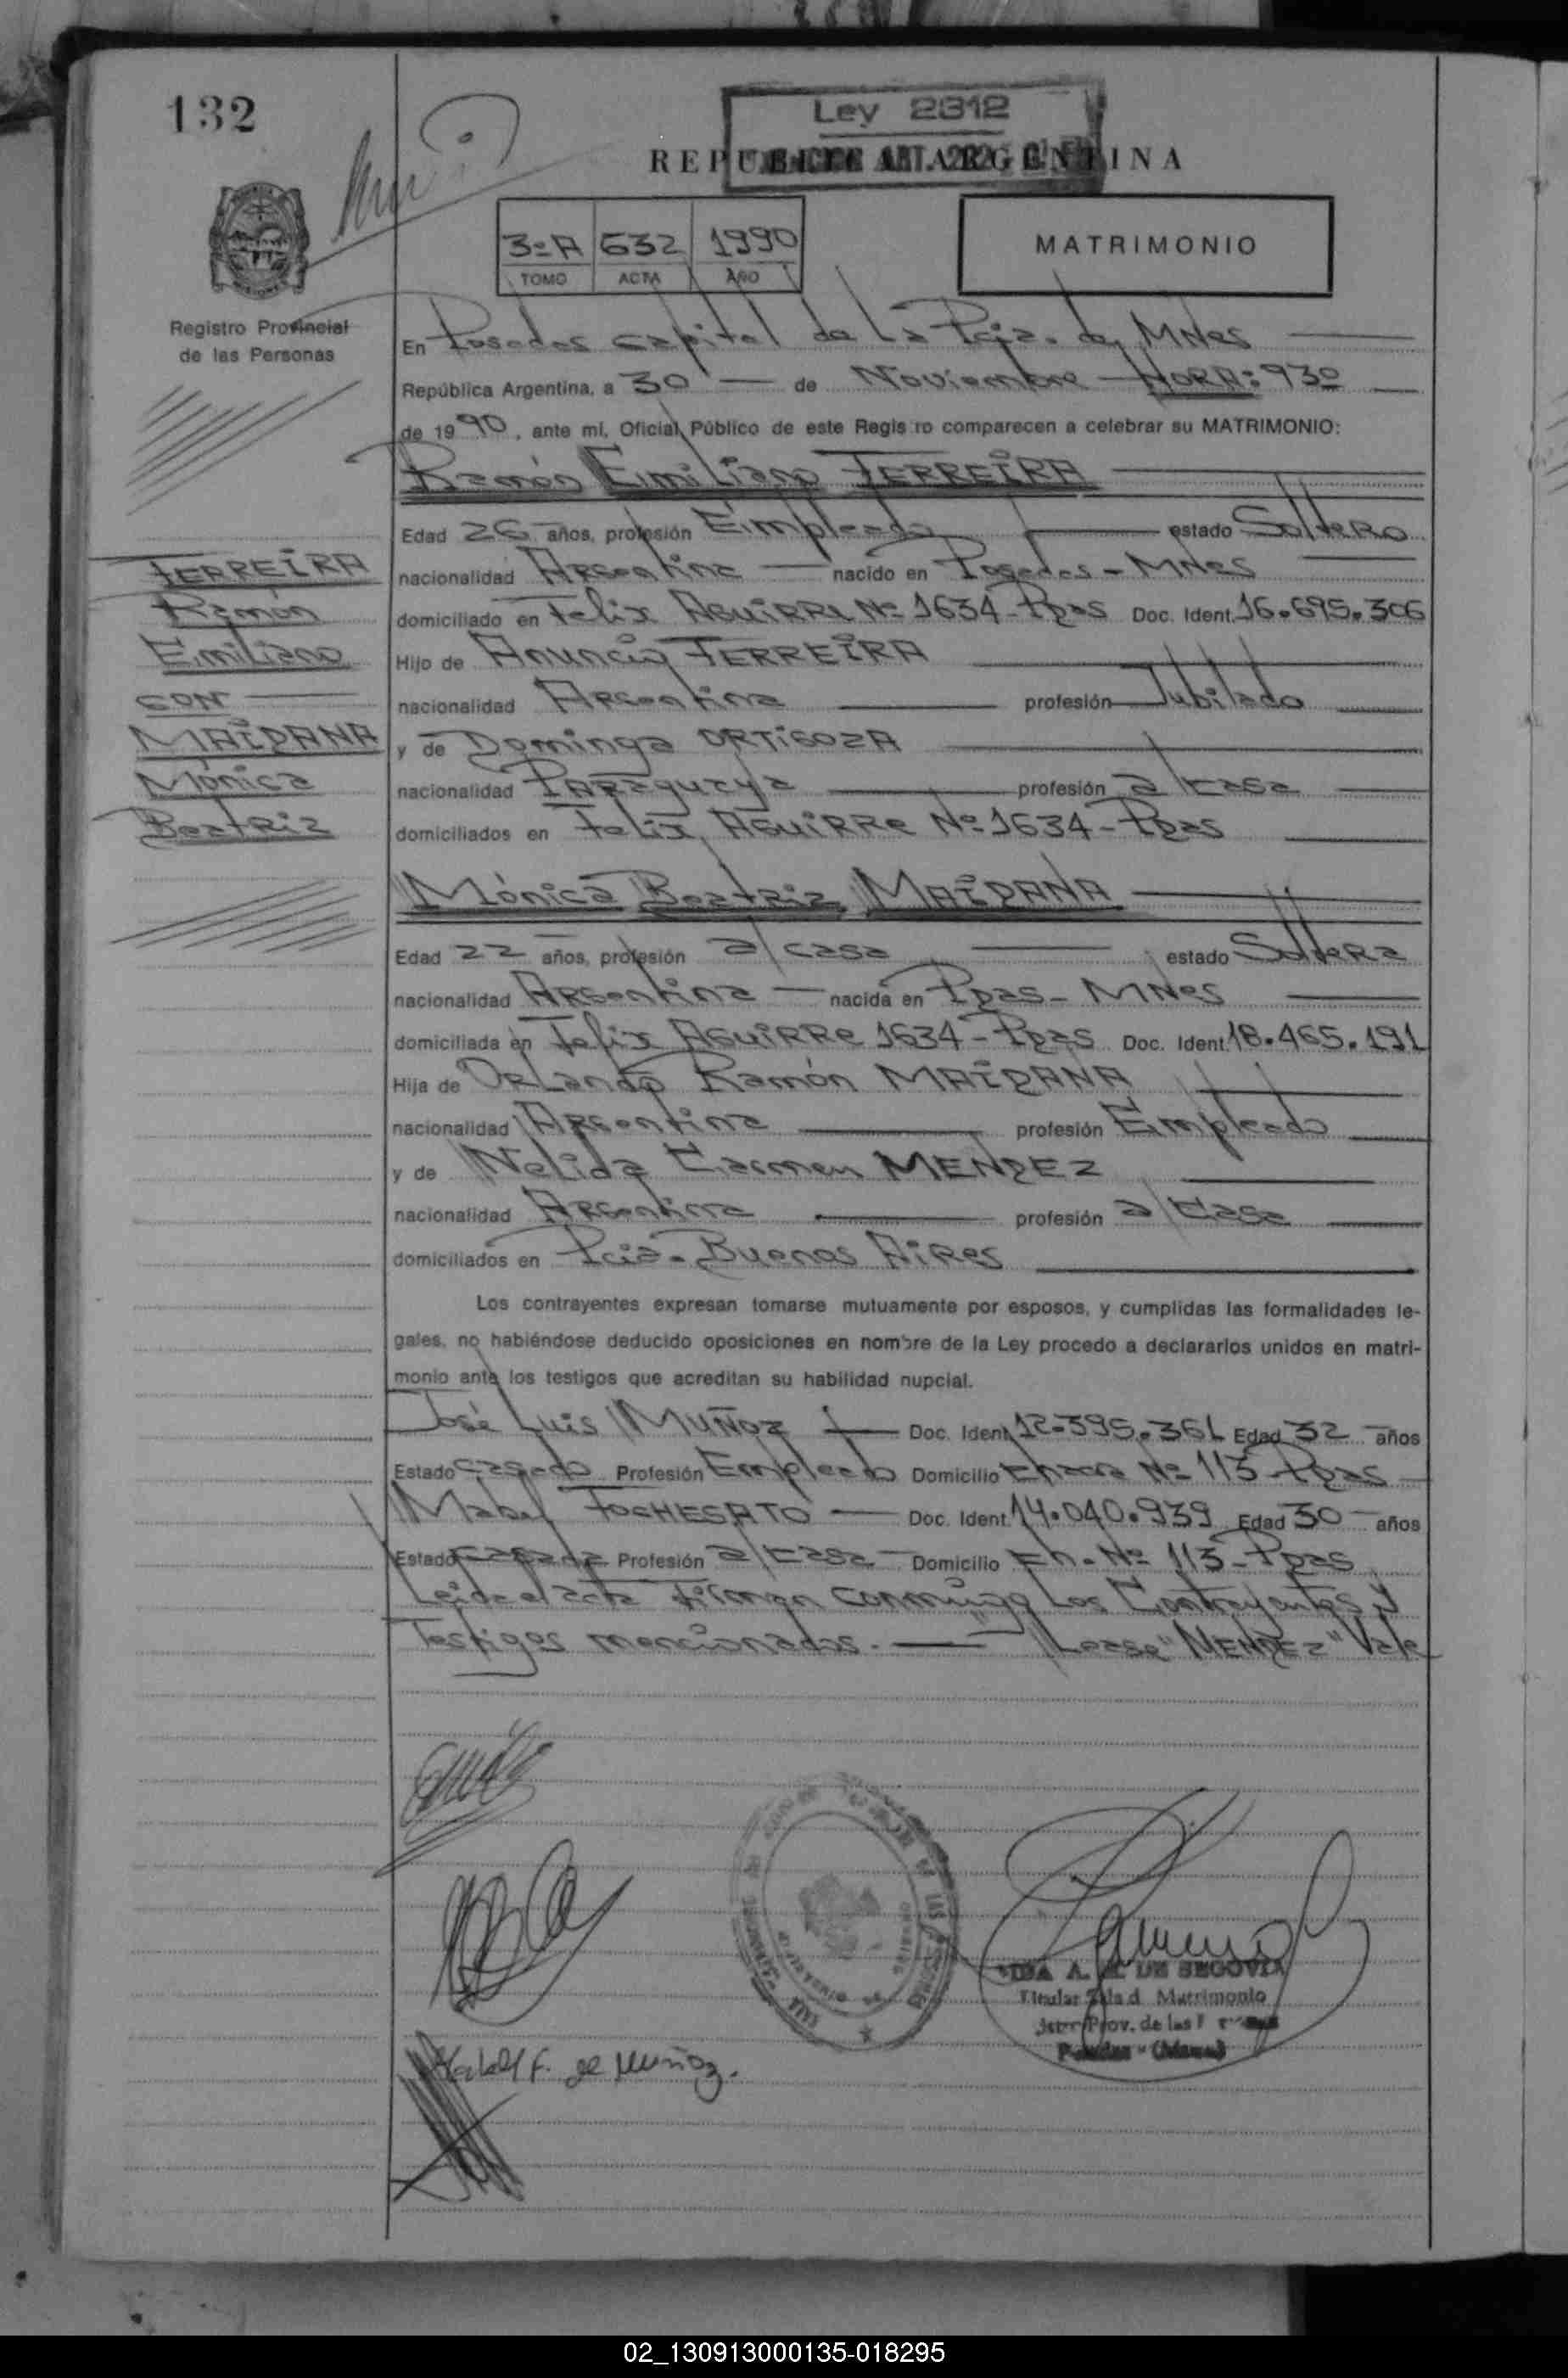 132
Ley 2312
REPUBLICA ARGENTINA
3º A 632 1990
TOMO ACTA AÑO
MATRIMONIO
Registro Provincial
de las Personas
En Posadas Capital de La Pcia. de Mnes
República Argentina, a 30 — de Noviembre — HORA: 9 30
de 1990, ante mi, Oficial Público de este Regis ro comparecen a celebrar su MATRIMONIO:
Ramón Emiliano FERREIRA
Edad 26 años, profesión Empleado estado Soltero
nacionalidad Argentina nacido en Posadas - Mnes
domiciliado en Felix Aguirre Nº 1634 - Ppas Doc. Ident. 16.695.306
Hijo de Anuncio FERREIRA
nacionalidad Argentina profesión Jubilado
y de Dominga ORTIGOZA
nacionalidad Paraguaya profesión a/casa
domiciliados en Felix Aguirre Nº 1634 - Ppas
FERREIRA
Ramón
Emiliano
CON
MAIDANA
Mónica
Beatriz
Mónica Beatriz MAIDANA
Edad 22 años, profesión a/casa estado Soltera
nacionalidad Argentina nacida en Ppas - Mnes
domiciliada en Felix Aguirre 1634 - Ppas Doc. Ident. 18.465.191
Hija de Orlando Ramón MAIDANA
nacionalidad Argentina profesión Empleado
y de Nelida Carmen MENDEZ
nacionalidad Argentina profesión a/casa
domiciliados en Pcia. Buenos Aires
Los contrayentes expresan tomarse mutuamente por esposos, y cumplidas las formalidades le-
gales, no habiéndose deducido oposiciones en nombre de la Ley procedo a declararlos unidos en matri-
monio ante los testigos que acreditan su habilidad nupcial.
José Luis MUÑOZ Doc. Ident. 12.395.361 Edad 32 años
Estado casado Profesión Empleado Domicilio Chacra Nº 113 - Ppas
Mabel FOCHESATO Doc. Ident. 14.040.939 Edad 30 años
Estado casada Profesión a/casa Domicilio Ch. Nº 113 - Ppas
Leida el acta firman conmigo los Contrayentes y
Testigos mencionados. — Lease "MENDEZ" Vale
Mabel F. de Muñoz.
A. DE SEGOVIA
Titular Sala d Matrimonio
Prov. de las
02_130913000135-018295